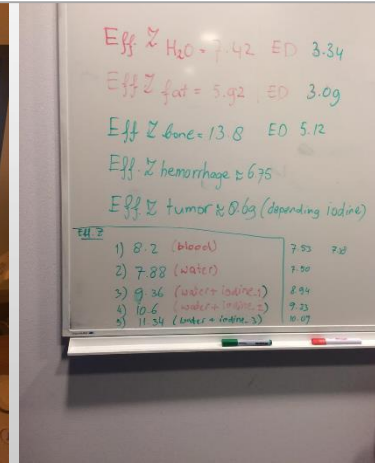 Eff Z H2O = 7.42 ED 3.34
Eff Z fat = 5.92 ED 3.09
Eff Z bone = 13.8 ED 5.12
Eff. Z hemorrhage ≈ 675
Eff. Z tumor ≈ 8.69 (depending iodine)
Eff. Z
1) 8.2 (blood) 7.53
2) 7.88 (water) 7.50
3) 9.36 (water + iodine, 1) 8.94
4) 10.6 (water + iodine, 2) 9.23
5) 11.34 (water + iodine, 3) 10.09